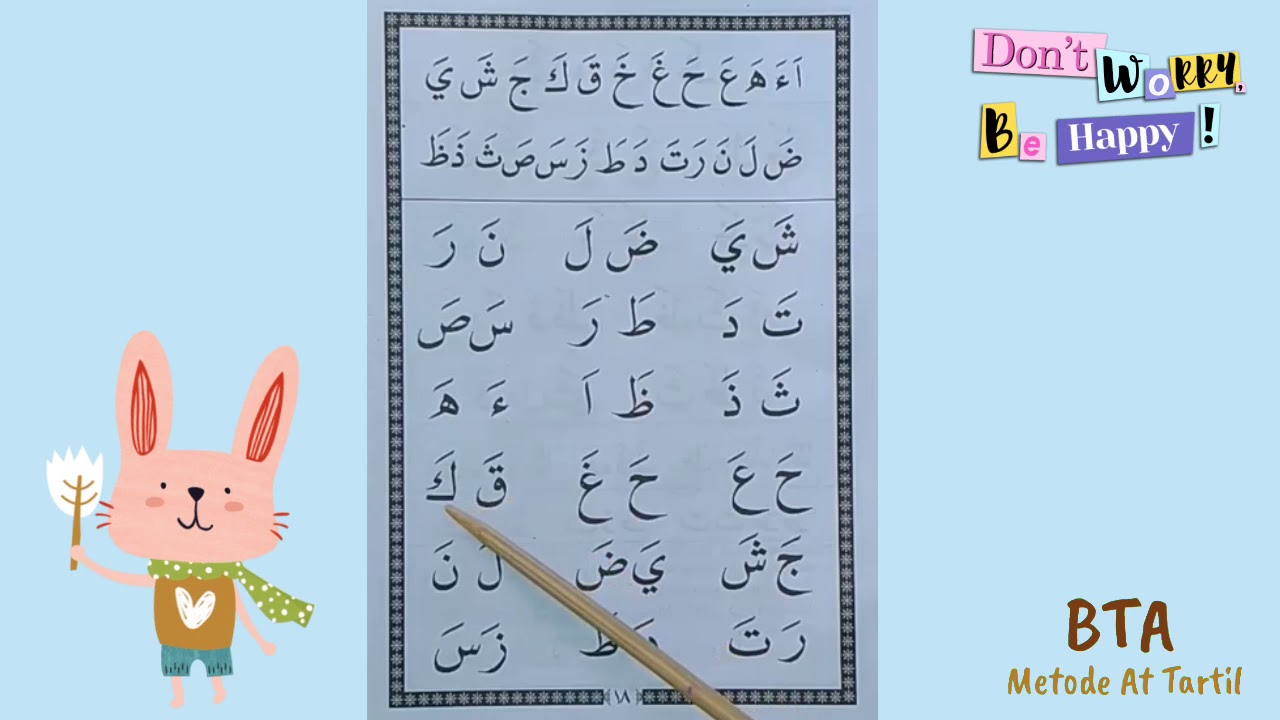 اَ ءَ هَ عَ حَ غَ خَ قَ كَ جَ شَ يَ
ضَ لَ نَ رَ تَ دَ طَ زَ سَ صَ ثَ ذَ ظَ
شَ يَ ضَ لَ نَ رَ
تَ دَ طَ رَ سَ صَ
ثَ ذَ ظَ اَ ءَ هَ
حَ عَ حَ غَ قَ كَ
جَ شَ يَ ضَ لَ نَ
رَ تَ زَ سَ
١٨
Don't Worry,
Be Happy!
BTA
Metode At Tartil